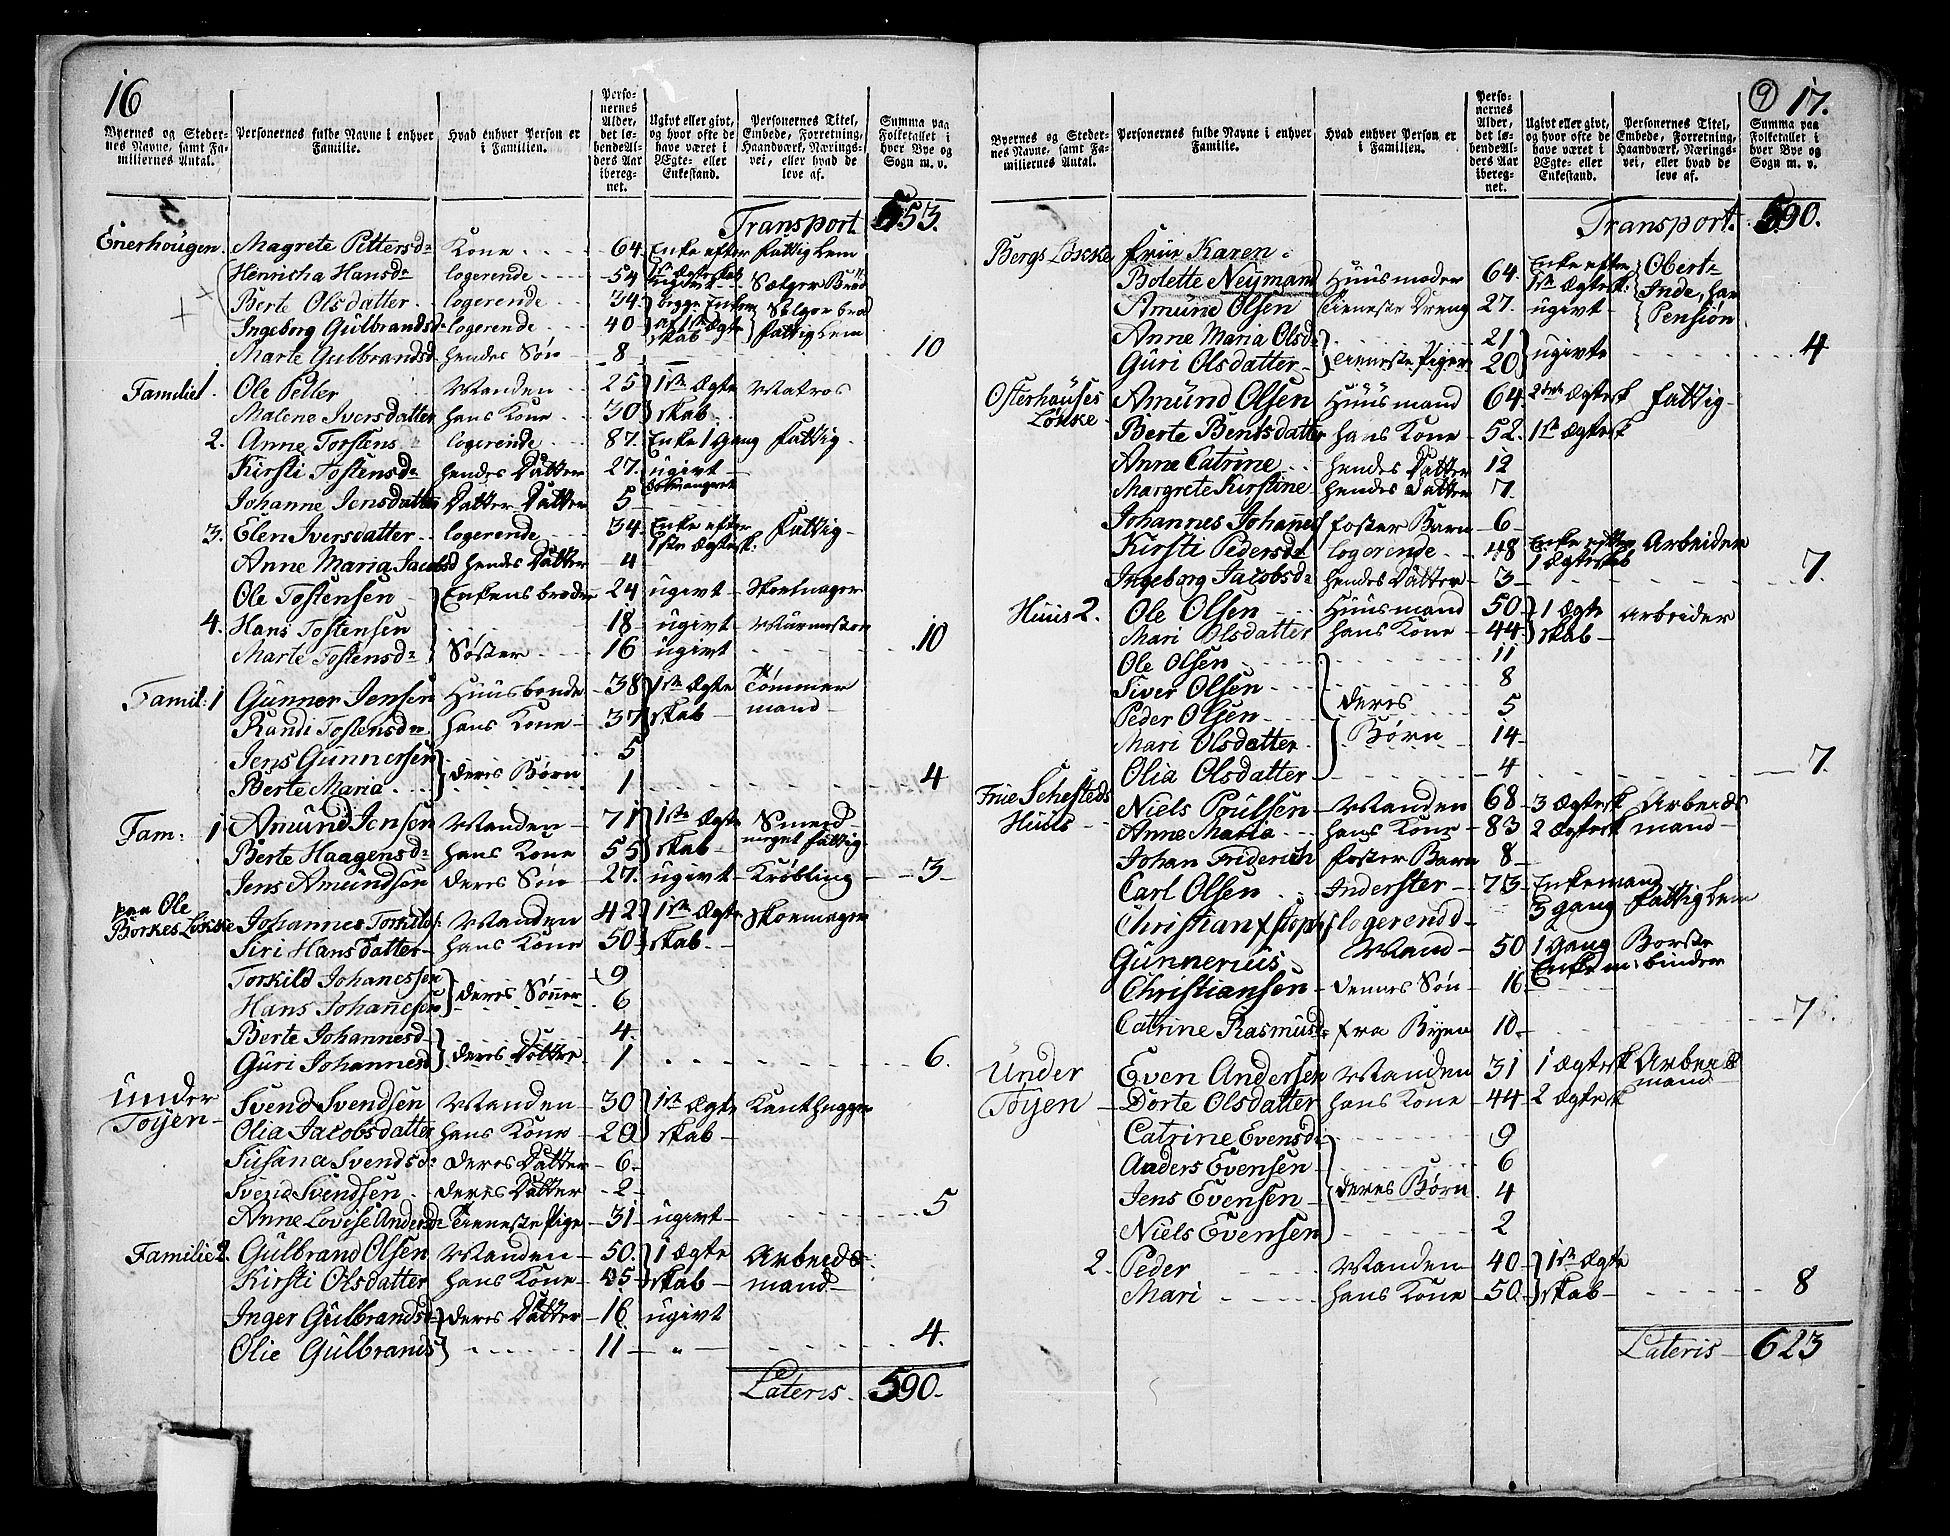 16
Byernes og Steder-
nes Navne, samt Fa-
miliernes Antal.
Personernes fulde Navne i enhver
Familie.
Hvad enhver Person er
i Familien.
Perso-
nernes
Alder,
det lø-
bende Al-
ders Aar
iberegnet.
Ugivt eller givt,
og hvor ofte de
have været i
Ægte- eller
Enkestand.
Personernes Titel,
Embede, Forretning,
Haandværk, Nærings-
vei, eller hvad de
leve af.
Summa paa
Folketallet i
hver Bye og
Sogn m. v.
Transport 553.
Enerhougen. Magrete Pettersd: Kone 64 Enke efter 1ste Ægteskab fattig Lem
Henricha Hansdr logerende 54 ugivt Sælger Brød
Berte Olsdatter logerende 34 begge Enker Selger brød
Ingeborg Gulbrandsd logerende 40 af 1ste Ægteskab fattig Lem
Marte Gulbrandsd. hendes Søn 8 10
Familie 1. Ole Peller Manden 25 1ste Ægte Matros
Malene Iversdatter hans Kone 30 skab
2. Anne Torstens logerende 87. Enke 1 Gang fattig
Kirsti Tostensdr hendes Datter 27. ugivt
Johanne Jensdatter Datter Datter 5
3. Elen Iversdatter logerende 34 Enke efter 1ste Ægtesk: fattig
Anne Maria Jacobsd hendes Datter 4
Ole Tostensen Enkens broder 24 ugivt Skoemager
4. Hans Tostensen 18 ugivt Muurmester
Marte Tostensdr Søster 16 ugivt 10
Famil: 1 Gunner Jensen Huusbonde 38 1ste Ægte Tømmer
Randi Tostensdr hans Kone 37 skab mand
Jens Gunnersen 5
Berte Maria deres Børn 1 4
Fam: 1 Amund Jensen Manden 71 1ste Ægte Smed
Berte Haagensd: hans Kone 55 skab meget fattig
Jens Amundsen deres Søn 27. ugivt Krøbling 3
paa Ole
Borkes Løkke Johannes Torkilds: Manden 42 1ste Ægte Skoemager
Siri Hansdatter hans Kone 50 skab
Torkild Johanessen 9
Hans Johanesen deres Sønner 6
Berte Johannesd 4
Guri Johannesd deres Døttre 1 6.
Under
Tøyen Svend Svendsen Manden 30 1ste Ægte Kanthugger
Olia Jacobsdatter hans Kone 29 skab
Susana Svendsd: deres Datter 6
Svend Svendsen deres Datter 2
Anne Lovise Andersd: Tieneste Pige 31 ugivt 5
Familie 2. Gulbrand Olsen Manden 50. 1 Ægte Arbeids
Kirsti Olsdatter hans Kone 45 skab mand
Inger Gulbrandsd deres Datter 16 ugivt
Olie Gulbrands 11 " 4.
Lateris 590.
9 17.
Byernes og Steder-
nes Navne, samt Fa-
miliernes Antal.
Personernes fulde Navne i enhver
Familie.
Hvad enhver Person er
i Familien.
Perso-
nernes
Alder,
det lø-
bende Al-
ders Aar
iberegnet.
Ugivt eller givt,
og hvor ofte de
have været i
Ægte- eller
Enkestand.
Personernes Titel,
Embede, Forretning,
Haandværk, Nærings-
vei, eller hvad de
leve af.
Summa paa
Folketallet i
hver Bye og
Sogn m. v.
Transport. 590.
Bergs Løccke Frue Karen
Bolette Neumann Huusmoder 64 Enke efter 1ste Ægtesk: Pension
Amund Olsen Tieneste Dreng 27. ugivt
Anne Maria Olsd: 21
Guri Olsdatter tieneste Piger 20 ugivte 4
Osterhauses
Løkke Amund Olsen Huusmand 64 2den Ægtesk fattig
Berte Bentsdatter hans Kone 52. 1ste Ægtesk
Anne Catrine hendes Datter 12
Margrete Kirstine hendes Datter 7.
Johannes Johannes foster Barn 6
Kirsti Pedersdr logerende 48 Enke efter 1 Ægteskab Arbeider
Ingeborg Jacobsdr hendes Datter 3 7.
Huus 2. Ole Olsen Huusmand 50 1 Ægte arbeider
Mari Olsdatter hans Kone 44 skab
Ole Olsen 11
Siver Olsen 8
Peder Olsen deres 5
Mari Olsdatter Børn 14
Olia Olsdatter 4 7.
Frue Schesteds
Huus Niels Poulsen Manden 68 3 Ægtesk Arbeids
Anne Maria hans Kone 83 2 Ægtesk mand
Johan Friderich foster Barn 8
Carl Olsen Inderster 73 Enkemand 3 gang fattig Lem
Christian logerend
Mand 50 1 Gang Enkem: Børste binder
Gunnerius
Christiansen dennes Søn 16
Catrine Rasmusd: fra Byen 10 7
Under
Tøyen Even Andersen Manden 31 1 Ægtesk Arbeids mand
Dorte Olsdatter hans Kone 44 2 Ægtesk
Catrine Evensd: 9
Anders Evensen 6
Jens Evensen deres Børn 4
Niels Evensen 2
2. Peder Manden 40 1ste Ægte
Mari hans Kone 50 skab 8
Lateris 623